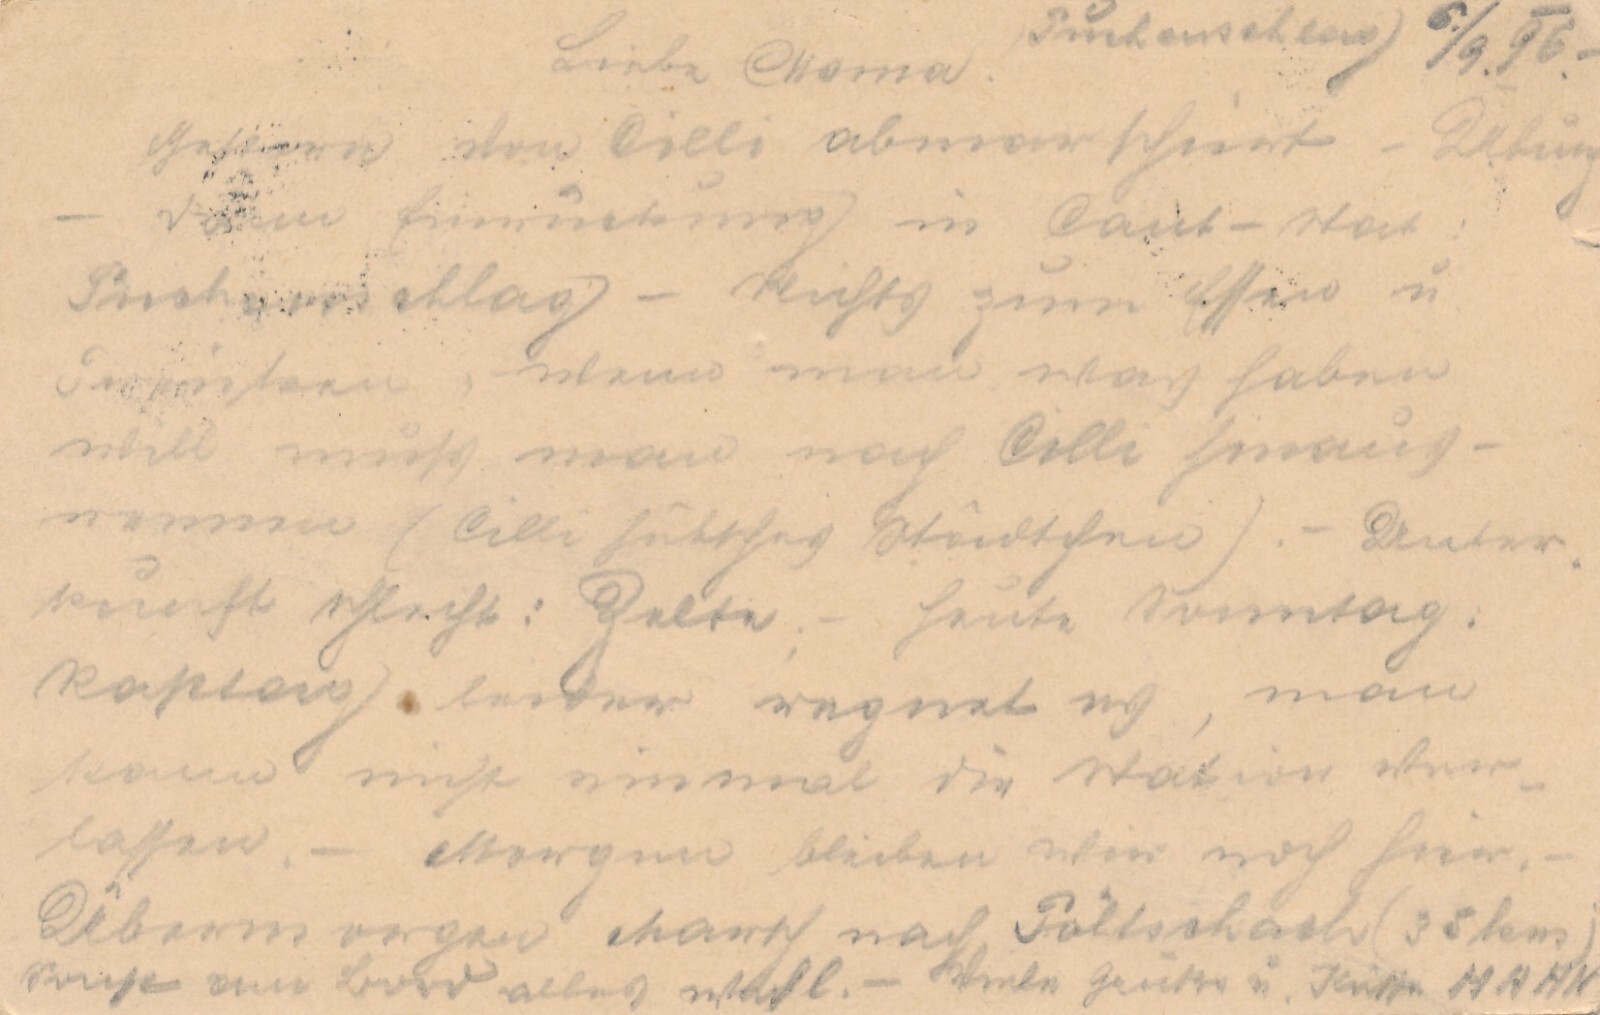 Puchenschlag 6./9. 96.-
Liebe Mama.
Gestern von Cilli abmarschiert - Übung
- dann Einrückung in Cant-stat:
Puchenschlag - Nichts zum Essen u
Trinken, wenn man was haben
will muß man nach Cilli hinaus-
rennen (Cilli hübsches Städtchen). - Unter-
kunft schlecht: Zelte, - heute Sonntag:
Rasttag, leider regnet es, man
kann nicht einmal die Station ver-
lassen. - Morgen bleiben wir noch hier. -
Übermorgen Marsch nach Pöltschach (38 km)
Sonst an Bord alles wohl. - Viele Grüße u. Küsse